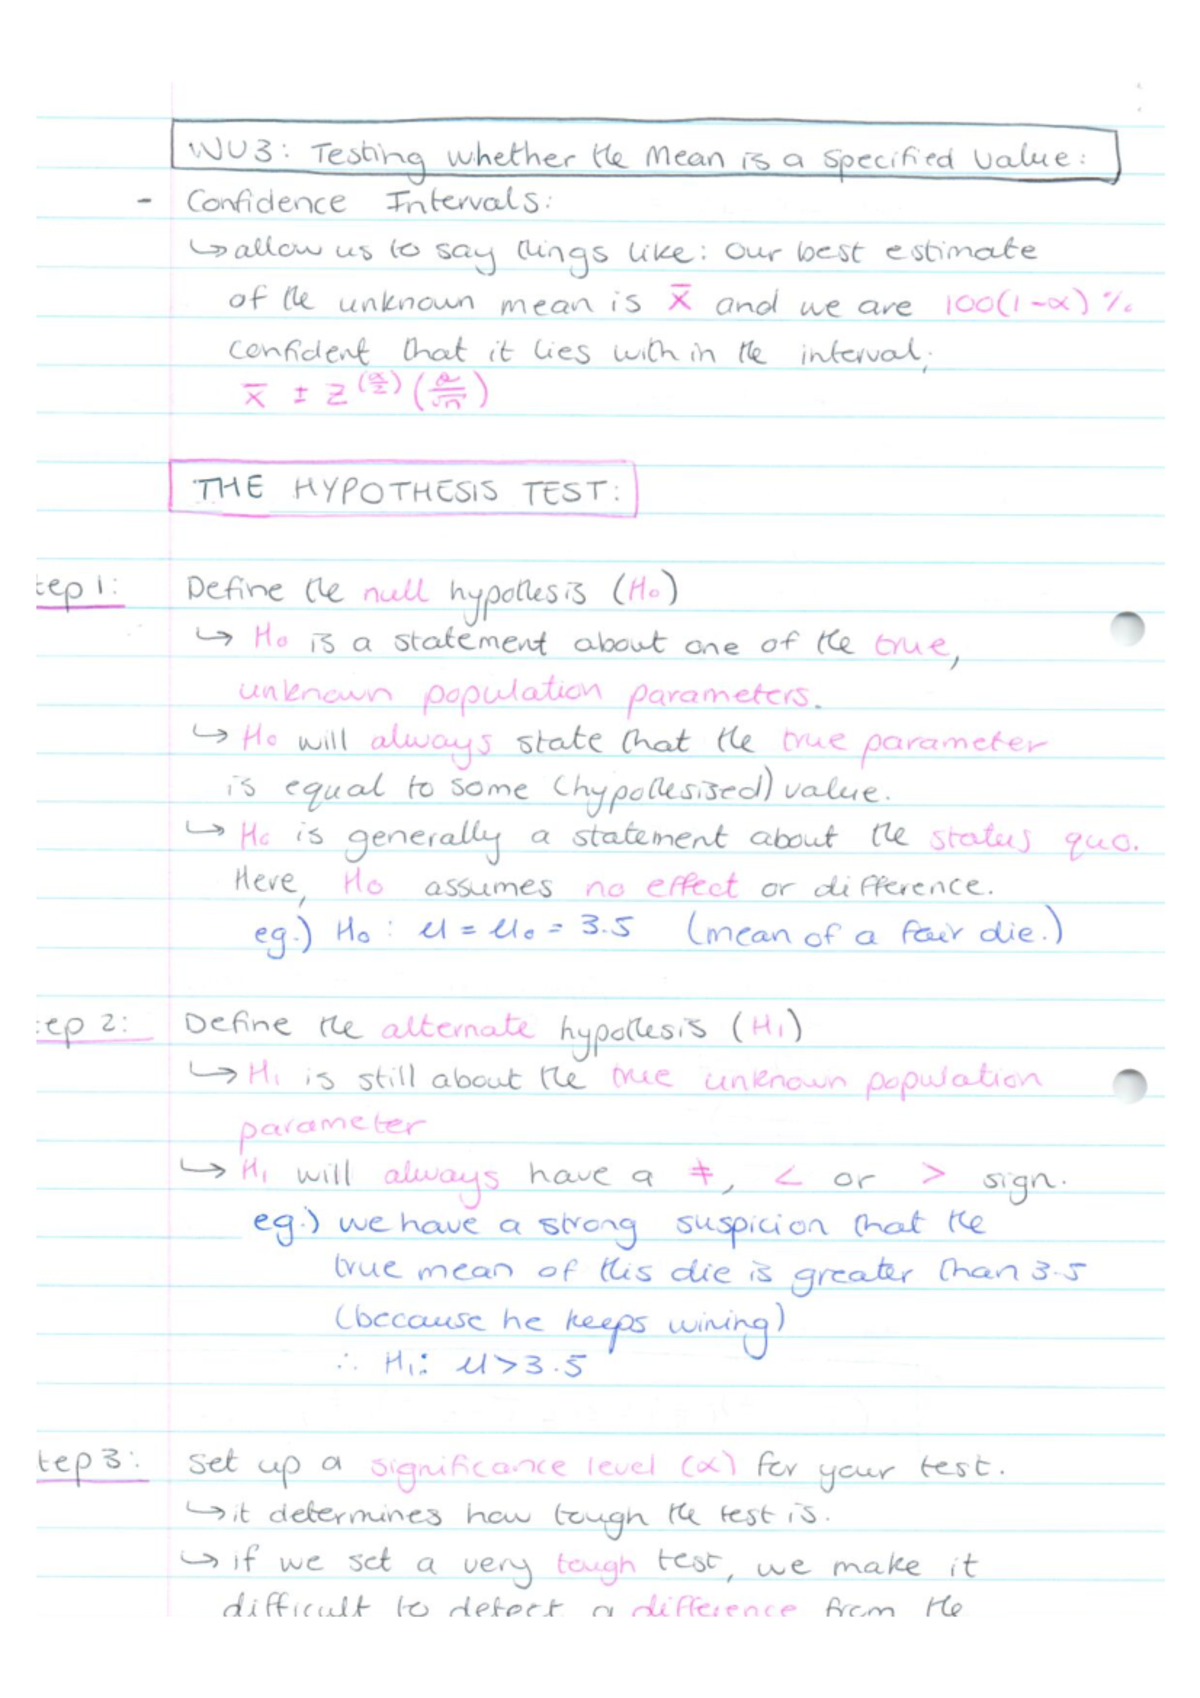 WU3: Testing whether the Mean is a specified value:
- Confidence Intervals:
↳ allow us to say things like: Our best estimate
of the unknown mean is x̄ and we are 100(1-α)%
confident that it lies with in the interval;
x̄ ± z^(α/2) (σ/√n)
THE HYPOTHESIS TEST:
tep 1: Define the null hypothesis (H₀)
↳ H₀ is a statement about one of the true,
unknown population parameters.
↳ H₀ will always state that the true parameter
is equal to some (hypothesised) value.
↳ H₀ is generally a statement about the status quo.
Here, H₀ assumes no effect or difference.
eg.) H₀ : μ = μ₀ = 3.5 (mean of a fair die.)
tep 2: Define the alternate hypothesis (H₁)
↳ H₁ is still about the true unknown population
parameter
↳ H₁ will always have a ≠, < or > sign.
eg.) we have a strong suspicion that the
true mean of this die is greater than 3.5
(because he keeps wining)
∴ H₁: μ > 3.5
tep 3: Set up a significance level (α) for your test.
↳ it determines how tough the test is.
↳ if we set a very tough test, we make it
difficult to detect a difference from the